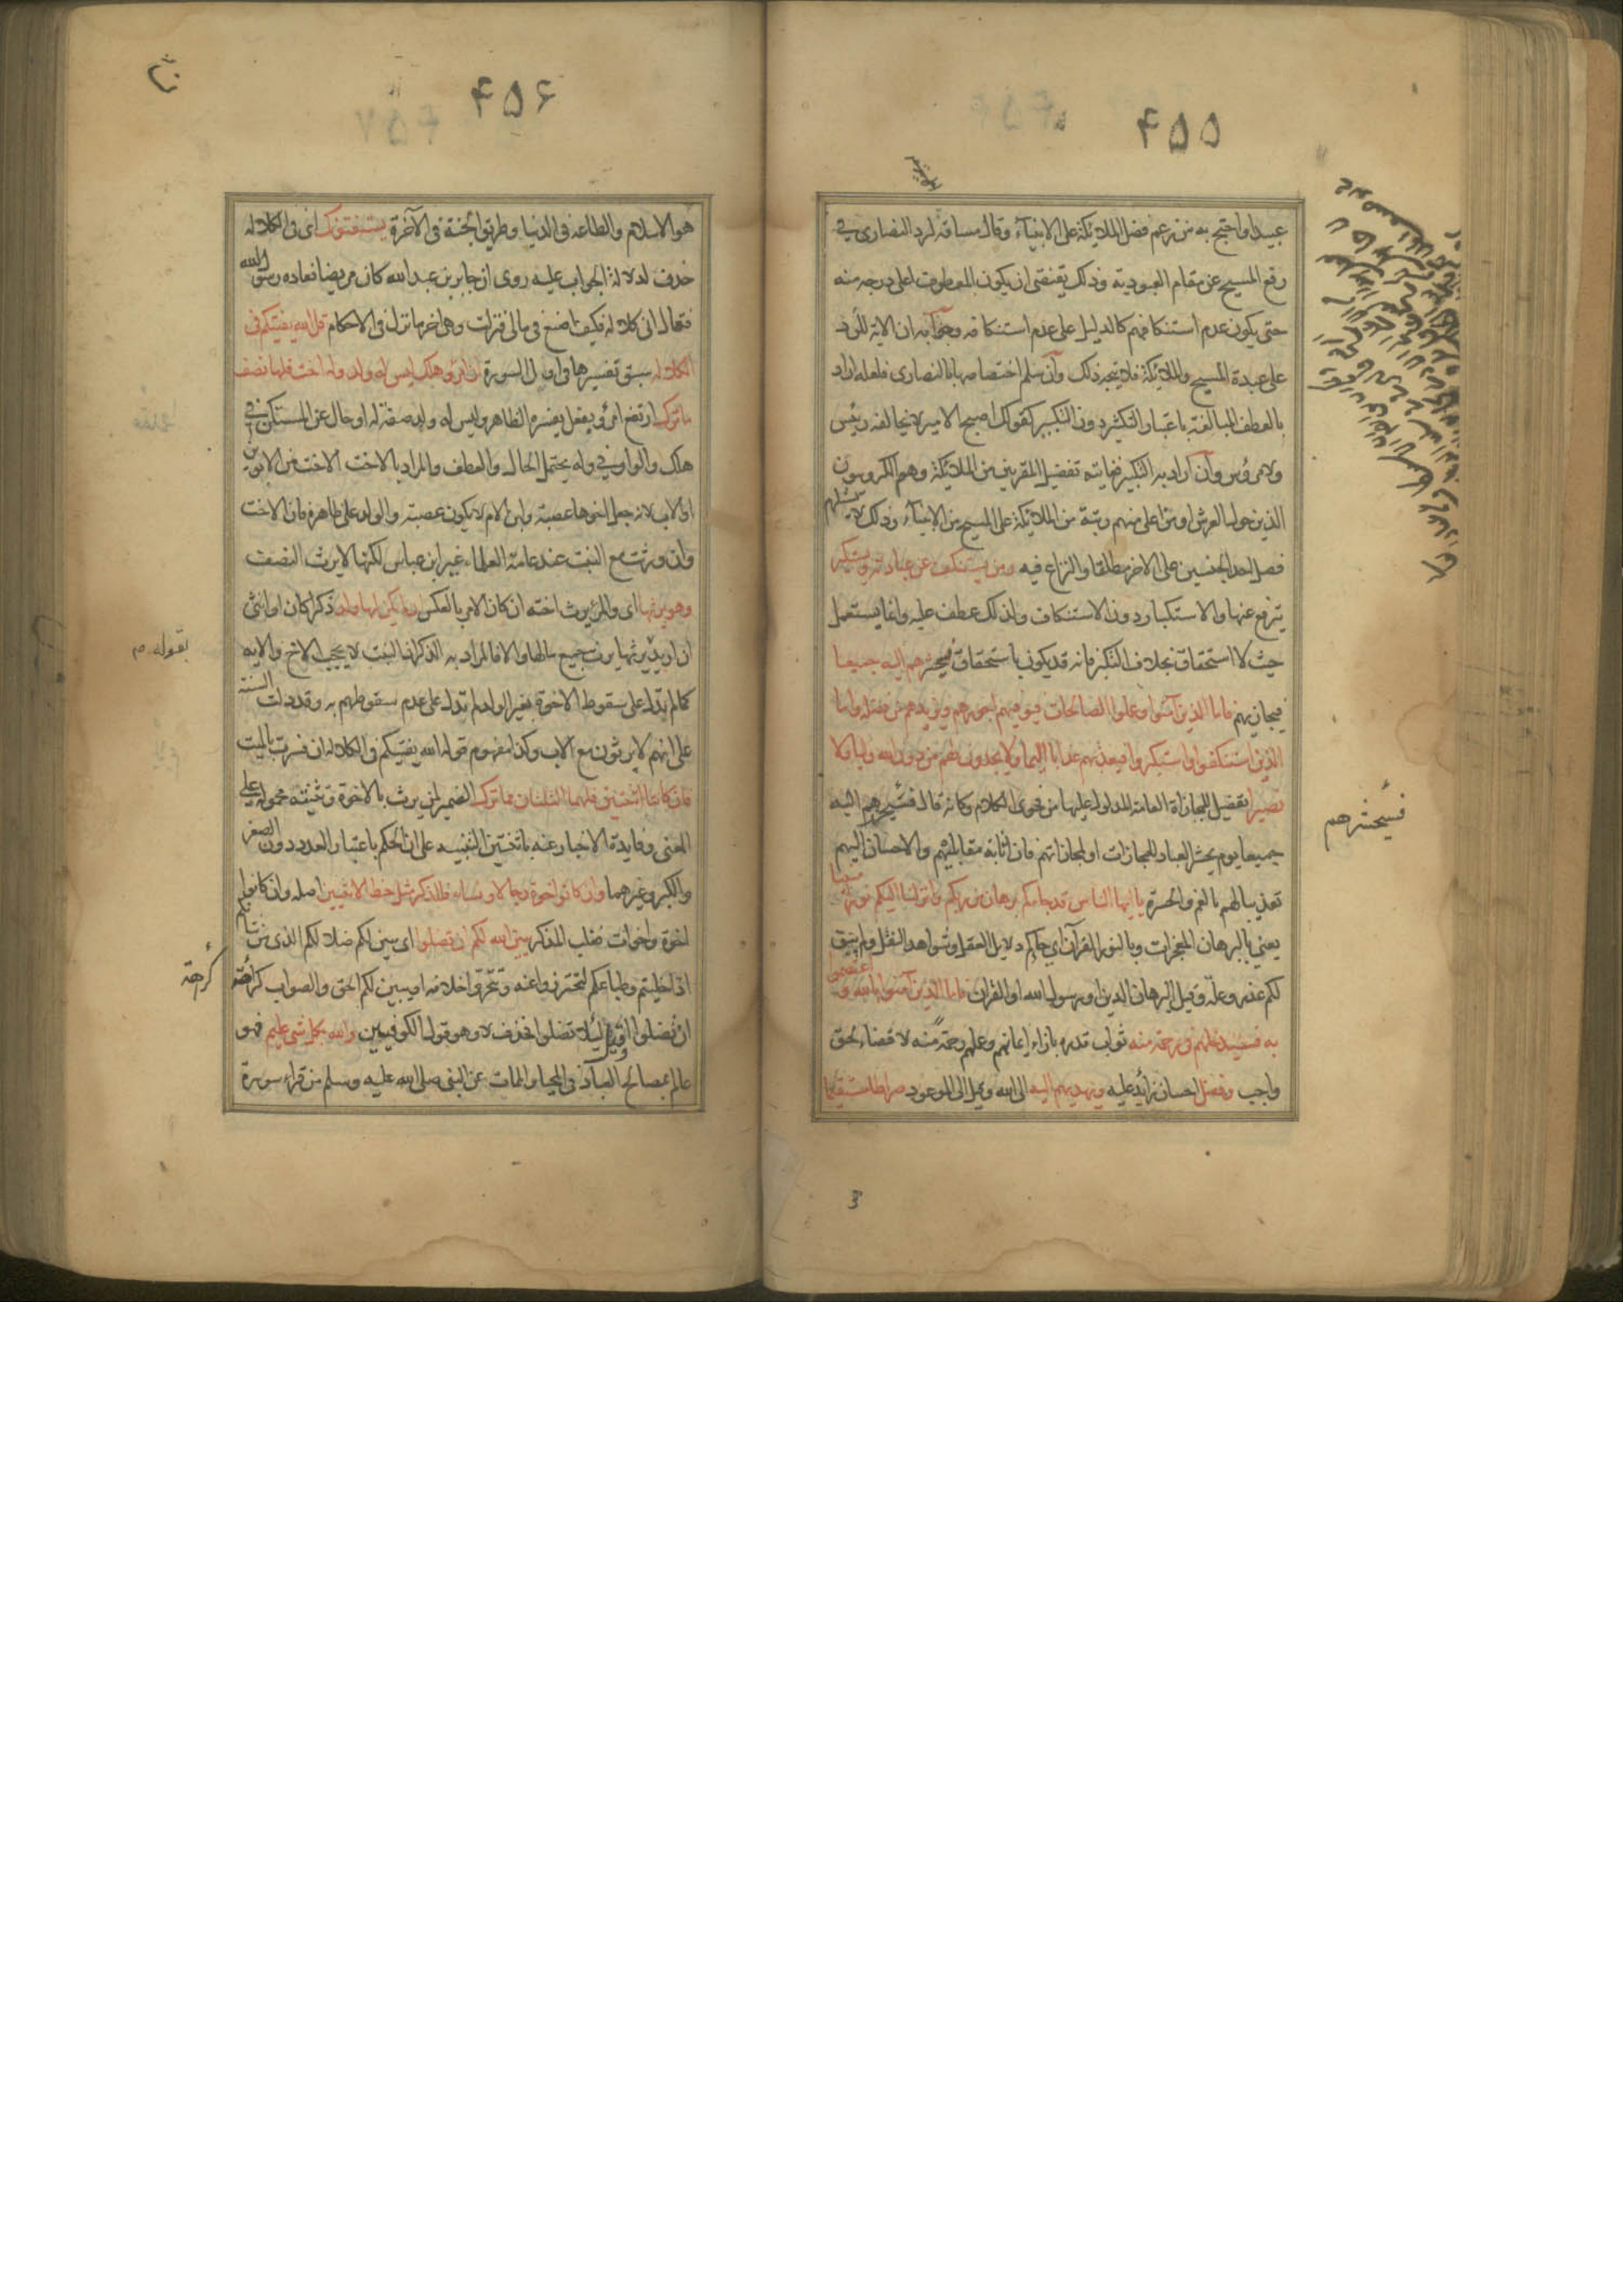 ۴۵۵
عبيدا واحتج به من زعم فضل الملائكة على الانبياء وقال مساقه لرد النصارى في
رفع المسيح عن مقام العبودية وذلك يقتضى ان يكون المعطوف اعلى درجه منه
حتى يكون عدم استنكافهم كالدليل على عدم استنكافه وجوابه ان الاية للرد
على عبدة المسيح والملائكة فلا يتجه ذلك وان سلم اختصاصها بالنصارى فلعله اراد
بالعطف المبالغة باعتبار التكثير دون التكبير كقولك اصبح الامير لا يخالفه رئيس
ولا مرؤس وان اراد به التكبير فغايته تفضيل المقربين من الملائكة وهم الكروبيون
الذين حول العرش او من اعلى منهم رتبة من الملائكة على المسيح من الانبياء وذلك لا يستلزم
فضل احد الجنسين على الاخر مطلقا والنزاع فيه ومن يستنكف عن عبادته ويستكبر
يترفع عنها والاستكبار دون الاستنكاف ولذلك عطف عليه وانما يستعمل
حيث لا استحقاق بخلاف التكبر فانه قد يكون باستحقاق فسيحشرهم اليه جميعا
فيجازيهم فاما الذين آمنوا وعملوا الصالحات فيوفيهم اجورهم ويزيدهم من فضله واما
الذين استنكفوا واستكبروا فيعذبهم عذابا اليما ولا يجدون لهم من دون الله وليا ولا
نصيرا تفصيل للمجازاة العامة المدلول عليها من فحوى الكلام وكانه قال فسيحشرهم اليه
فسيحشرهم
جميعا يوم يحشر العباد للمجازات او لمجازاتهم فان اثابة مقابليهم والاحسان اليهم
تعذيب لهم بالغم والحسرة يا ايها الناس قد جاءكم برهان من ربكم وانزلنا اليكم نورا مبينا
يعني بالبرهان المعجزات وبالنور القرآن اي جاءكم دلايل العقل وشواهد النقل ولم يبق
لكم عذر وعلة وقيل البرهان الدين او رسول الله او القران فاما الذين آمنوا بالله واعتصموا
به فسيدخلهم في رحمة منه ثواب قدره بازاء ايمانهم وعملهم رحمة منه لا قضاء لحق
واجب وفضل احسان زائد عليه ويهديهم اليه الى الله وقيل الى الموعود صراطا مستقيما
۴۵۶
هو الاسلام والطاعه في الدنيا وطريق الجنة في الآخرة يستفتونك اى في الكلالة
حذف لدلالة الجواب عليه روى ان جابر بن عبد الله كان مريضا فعاده رسول الله
فقال انى كلالة فكيف اصنع في مالى فنزلت وهى اخر ما نزل في الاحكام قل الله يفتيكم في
الكلالة سبق تفسيرها في اول السورة ان امرؤ هلك ليس له ولد وله اخت فلها نصف
ما ترك ارتفع امرؤ بفعل يفسره الظاهر وليس له ولد صفة له او حال عن المستكن في
هلك والواو في وله يحتمل الحال والعطف والمراد بالاخت الاخت من الابوين
او الاب لانه جعل اخوها عصبة وابن الام لا يكون عصبة والولد على ظاهره فان الاخت
وان ورثت مع البنت عند عامة العلماء غير ابن عباس لكنها لا يرث النصف
وهو يرثها اى والمرء يرث اخته ان كان الامر بالعكس ان لم يكن لها ولد ذكرا كان او انثى
ان اريد يرثها يرث جميع مالها والا فالمراد به الذكر اذ البنت لا يحجب الاخ والاية
بقوله م
كما لم تدل على سقوط الاخوة بغير الولد لم تدل على عدم سقوطهم به وقد دلت السنة
على انهم لا يرثون مع الاب وكذا مفهوم قوله الله يفتيكم في الكلالة ان فسرت بالميت
فان كانتا اثنتين فلهما الثلثان مما ترك الضمير لمن يرث بالاخوة وتثنيته محمولة على
المعنى وفايدة الاخبار عنه باثنتين التنبيه على ان الحكم باعتبار العدد دون الصغر
والكبر وغيرهما وان كانوا اخوة رجالا ونساء فللذكر مثل حظ الانثيين اصله وان كانوا
اخوة واخوات فغلب المذكر يبين الله لكم ان تضلوا اى يبين لكم ضلالكم الذى من شانكم
اذا خليتم وطباعكم لتحترزوا عنه وتتحروا خلافه او يبين لكم الحق والصواب كراهة
كراهة
ان تضلوا وقيل لئلا تضلوا فحذف لا وهو قول الكوفيين والله بكل شئ عليم فهو
عالم بمصالح العباد في المحيا والممات عن النبى صلى الله عليه وسلم من قراء سورة